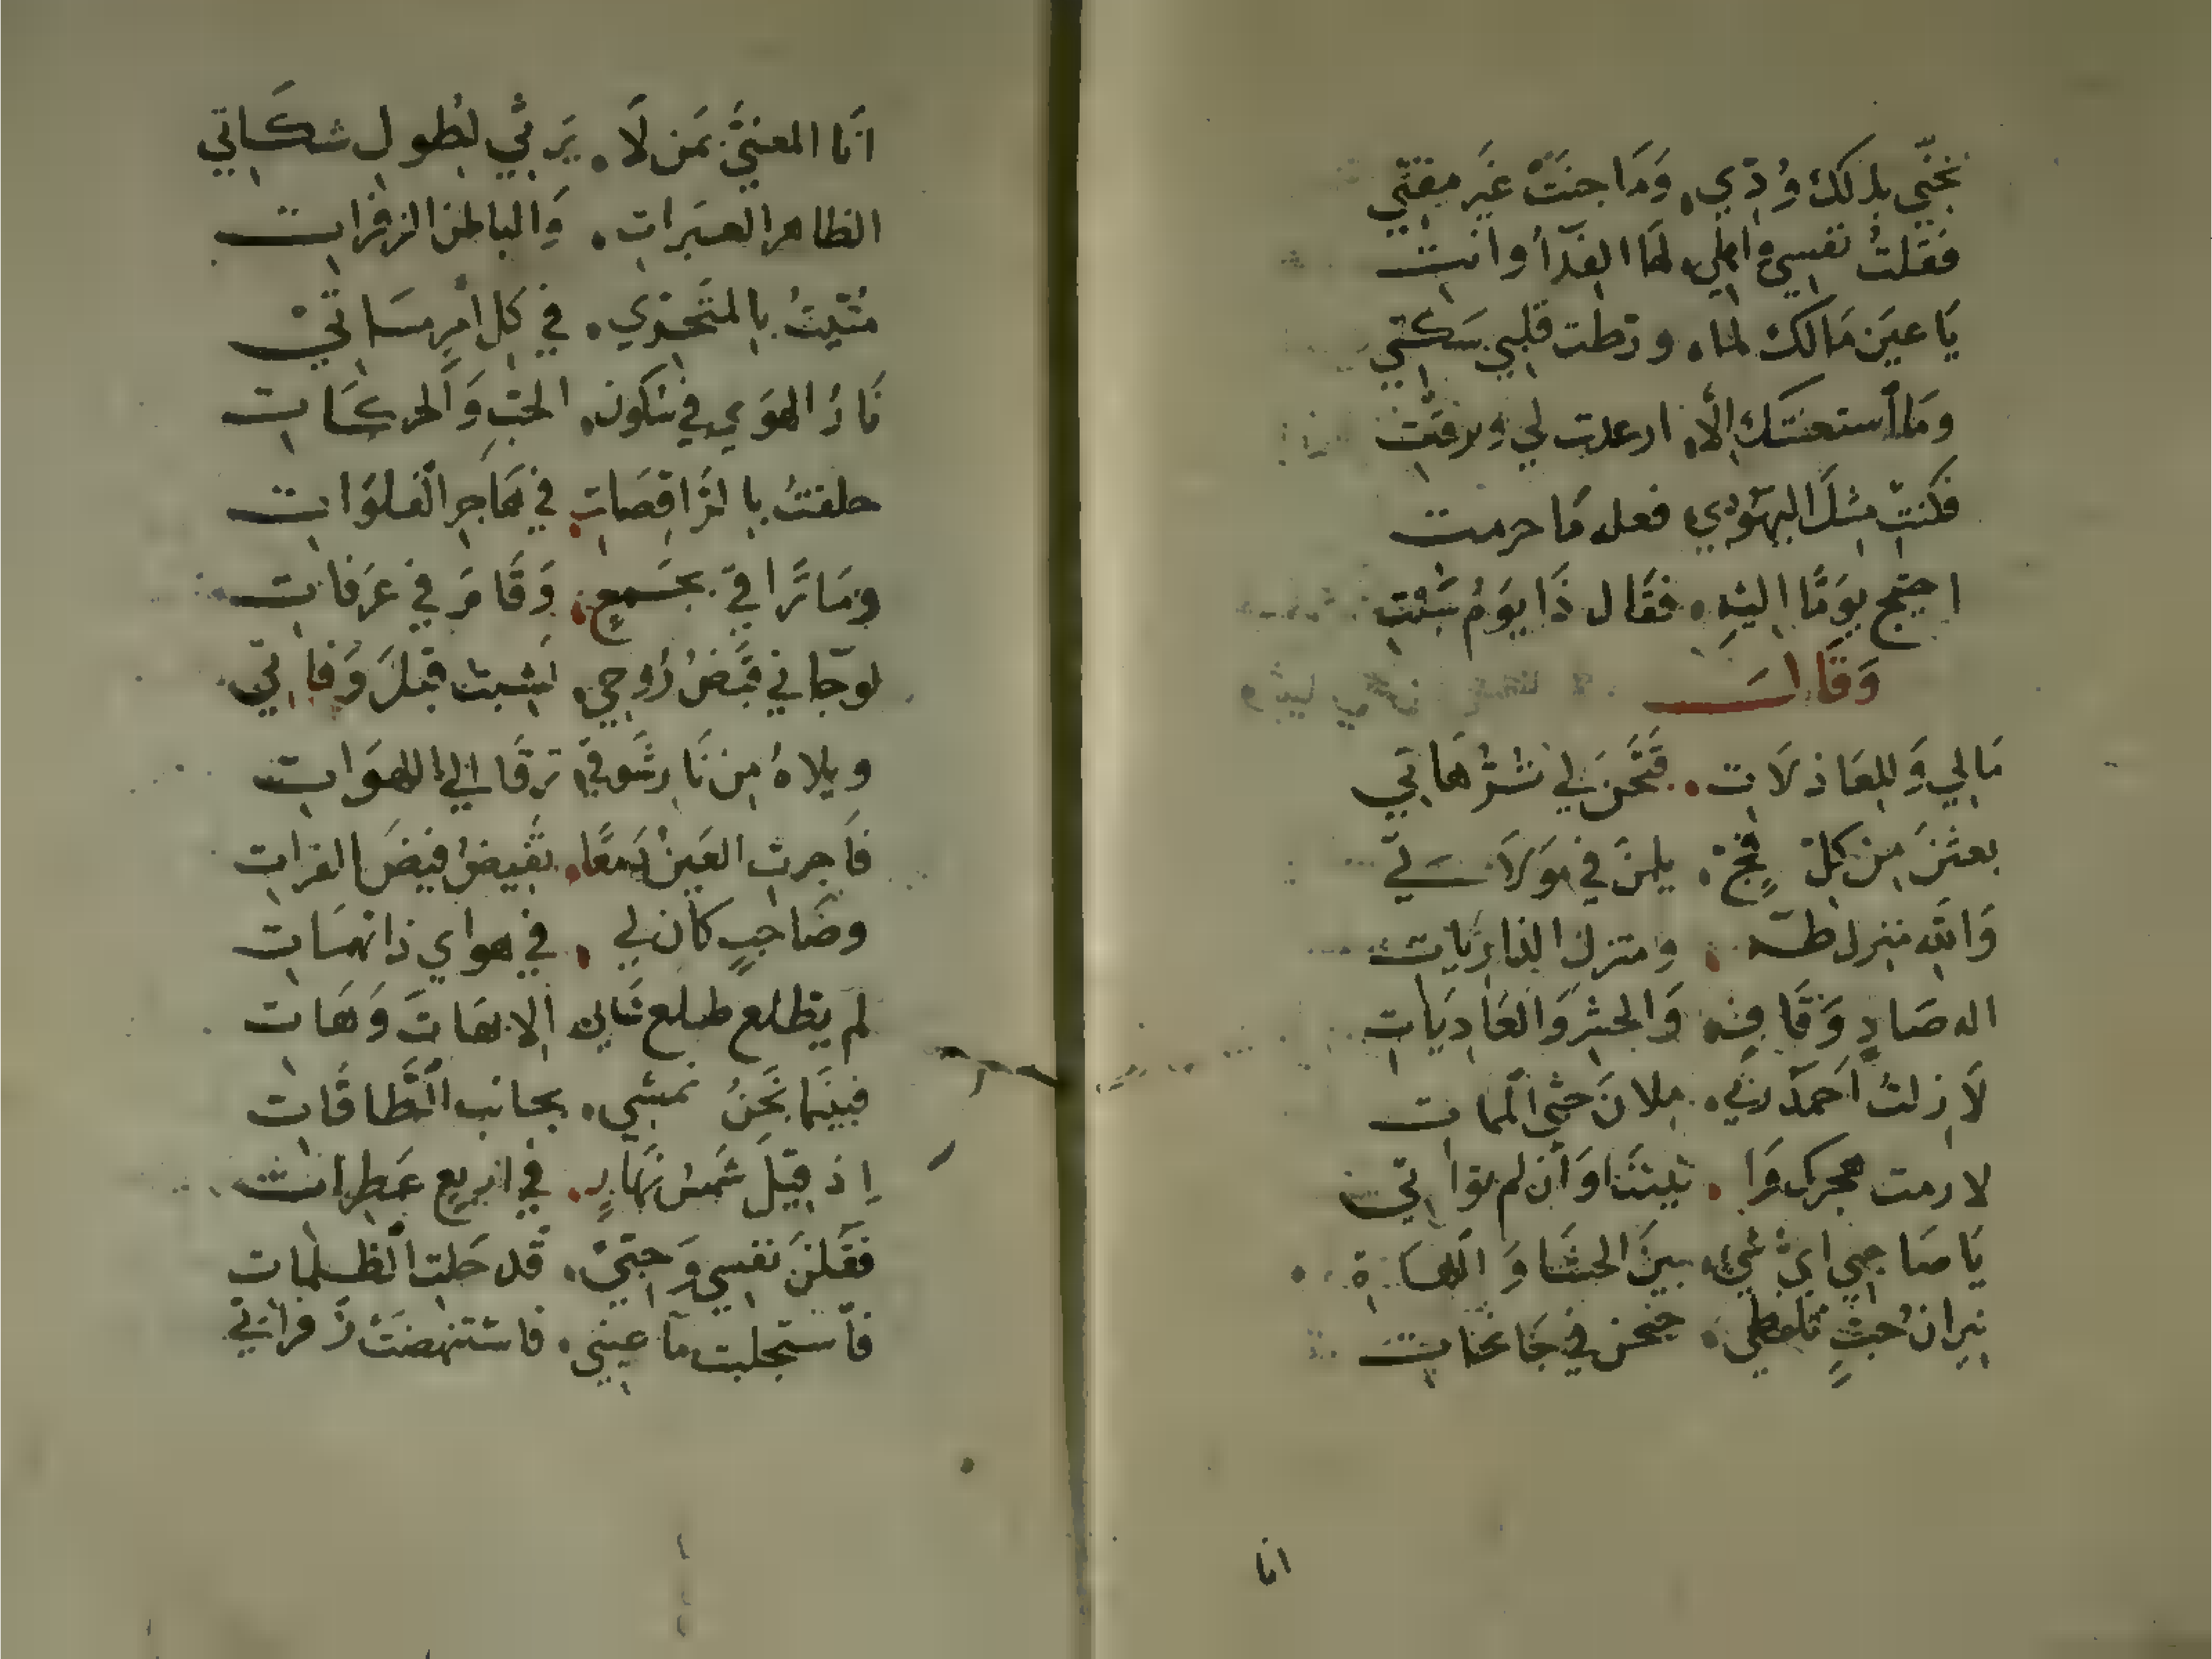 تجنّي بذلك وُدّي. وَمَا جنَتْ غَير مقتي
فَقلتُ نفسي وأهلي لهَا الفدَآءُ وأنت
يَا عينَ مَالك لما. ورّطت قلبي سَكتّي
ومَا أستعنتك إلّا. ارعدت لي وبرقتِ
فكنتِ مثلَ اليهَودي فعل مَا حرمت
احتيج يَومًا إليهِ. فقَال ذَا يَومُ سَبْتِ
وَقَالَ
مَالي وَللعَاذلَات. فَتّحنَ لي تُرَّهَاتي
بعثنَ مِن كلّ فجّ. يلمنَ في مَولَاتي
وَالله منزل طٰه. ومنزل الذارِيَات
الر صَادٍ وَقَافٍ وَالحشرِ وَالعَادِيَاتِ
لَا زلتُ أحمدُ ربّي. ملانَ حتّى الممات
لا رمت هجرك فَوَا
يَا صَاحبي أيّ شيءٍ. بينَ الحشَا وَاللهَاةِ
نيرانُ حبٍّ تلظّى. في جَانحَات
انا
انَا المعنّى بمَن لَا. يَرثي لطُولِ شكَاتي
الظاهر العبَراتِ. وَالباطن الزفرَات
مُنيتُ بالمتَحرّي. في كل أمرٍ مسَاتي
نَارُ الهوَى في سكون. الحبّ وَالحركَات
حلفتُ بالرَّاقِصَاتِ في مهَاجر الفلوَات
ومَا ترَاقى بجَمعٍ. وَقَامَ في عرَفَات
لو جَاني قَبضُ رُوحي. لشبت قَبلَ وَفَاتي
ويلاهُ مِن نَار شَوقي. ترقَا إلى اللهوَات
فَأجرت العَين دَمعًا. تفيضُ فيضَ الفرات
وصَاحبٍ كان لي. في هواي ذا نهسَات
لم يطّلع طلع شأني إلا بهَاتَ وَهَات
فبينما نَحنُ نمشي. بجانب الطَّاقَات
إذ قيل شَمسُ نَهَارٍ. في أربعٍ عَطرات
فقلنَ نفسي وَحبّي. قَد حَلت الظلمات
فَأستجلبت مآ عيني. فاستنهضَتْ زَفراتي